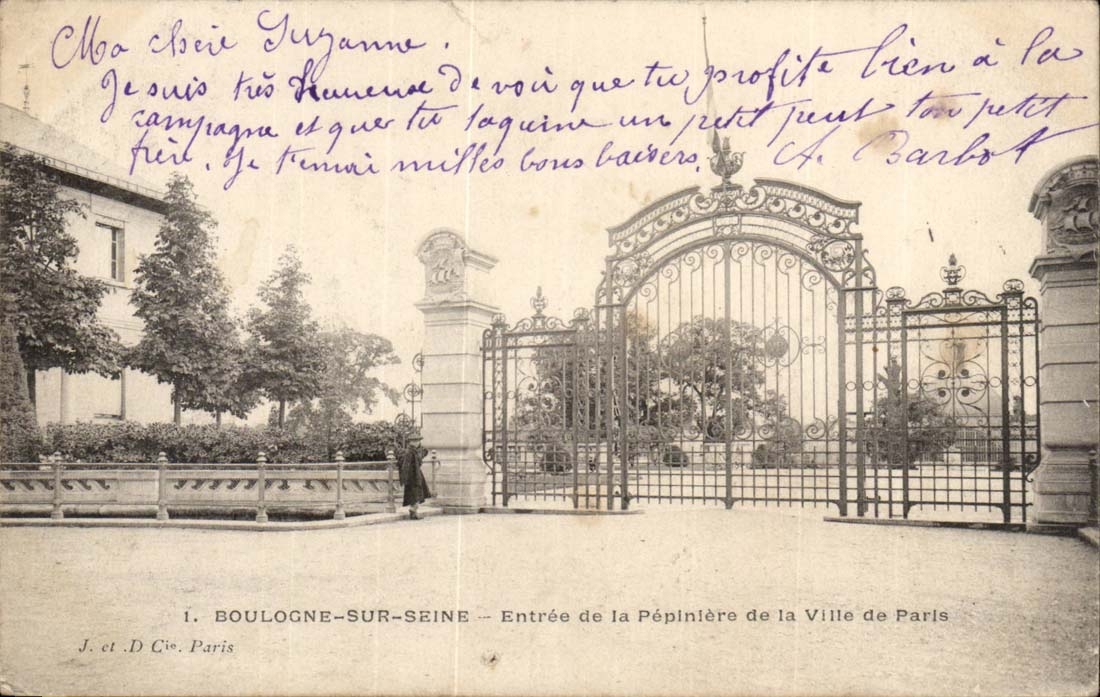 Ma chère Suzanne.
Je suis très heureuse de voir que tu profite bien à la
campagne et quer tu taquine un petit peut ton petit
frère. Je t'envoi milles bons baisers. A. Barbot
1. BOULOGNE-SUR-SEINE — Entrée de la Pépinière de la Ville de Paris
J. et .D Cie. Paris